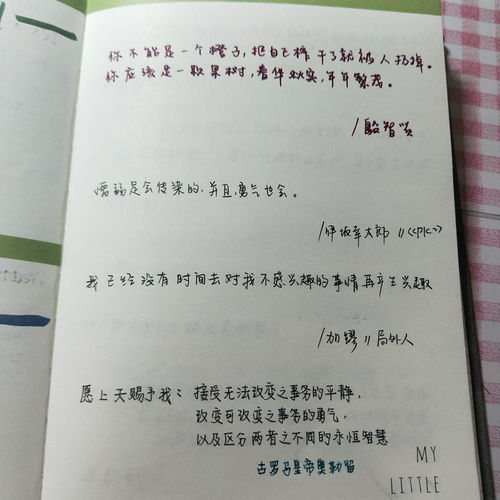 你不能是一个橙子，把自己榨干了就被人扔掉。
你应该是一颗果树，春华秋实，年年繁茂。
/殷智贤
懦弱是会传染的，并且，勇气也会。
/伊坂幸太郎 //《PK》
我已经没有时间去对我不感兴趣的事情再产生兴趣
/加缪 // 局外人
愿上天赐予我：接受无法改变之事务的平静，
改变可改变之事务的勇气，
以及区分两者之不同的永恒智慧
古罗马皇帝奥勒留
MY
LITTLE